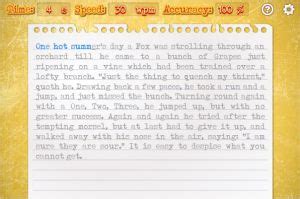 Time: 4 s Speed: 30 wpm Accuracy: 100 %
One hot summer's day a Fox was strolling through an
orchard till he came to a bunch of Grapes just
ripening on a vine which had been trained over a
lofty branch. "Just the thing to quench my thirst,"
quoth he. Drawing back a few paces, he took a run and a
jump, and just missed the bunch. Turning round again
with a One, Two, Three, he jumped up, but with no
greater success. Again and again he tried after the
tempting morsel, but at last had to give it up, and
walked away with his nose in the air, saying: "I am
sure they are sour." It is easy to despise what you
cannot get.